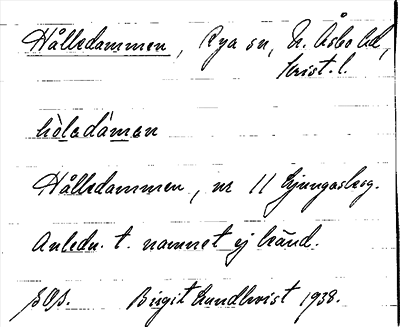 Hålledammen, Rya sn, N. Åsbo hd,
Krist. l.
hòladàman
Hålledammen, nr 11 Ljungasberg.
Anledn. t. namnet ej känd.
Birgit Lundkvist 1938.